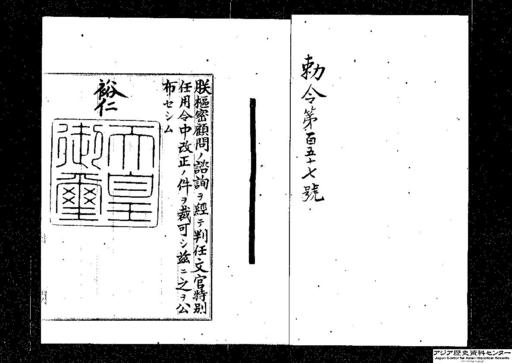 勅令第百五十七號
朕樞密顧問ノ諮詢ヲ經テ判任文官特別
任用令中改正ノ件ヲ裁可シ茲ニ之ヲ公
布セシム
裕仁
天皇
御璽
アジア歴史資料センター
Japan Center for Asian Historical Records